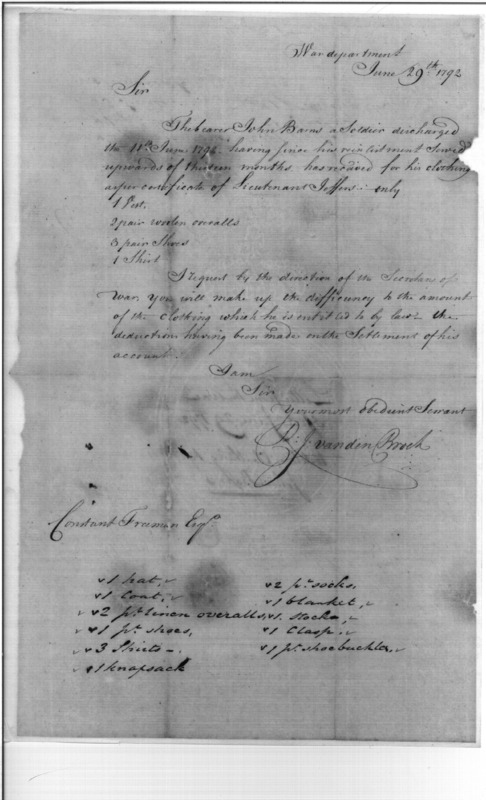 War department
June 29th 1792
Sir
The bearer John Barns a Soldier discharged
the 11th June 1792. having since his reinlistment served
upwards of thirteen months. has received for his clothing
as per certificate of Lieutenant Jeffers: only
1 Vest.
2 pair woolen overalls
3 pair Shoes
1 Shirt
I request by the direction of the Secretary of
War, you will make up the difficiency to the amount
of the Clothing which he is entitled to by law - the
deduction having been made on the Settlement of his
account.
I am
Sir
Your most obedient Servant
vanden Broek
Constant Freeman Esqr.
1 hat,
1 Coat,
2 pr. linen overalls,
1 pr. shoes,
3 Shirts -.
1 knapsack
2 pr. socks,
1 blanket,
1. Stock,
1 Clasp,
1 pr. shoebuckles,